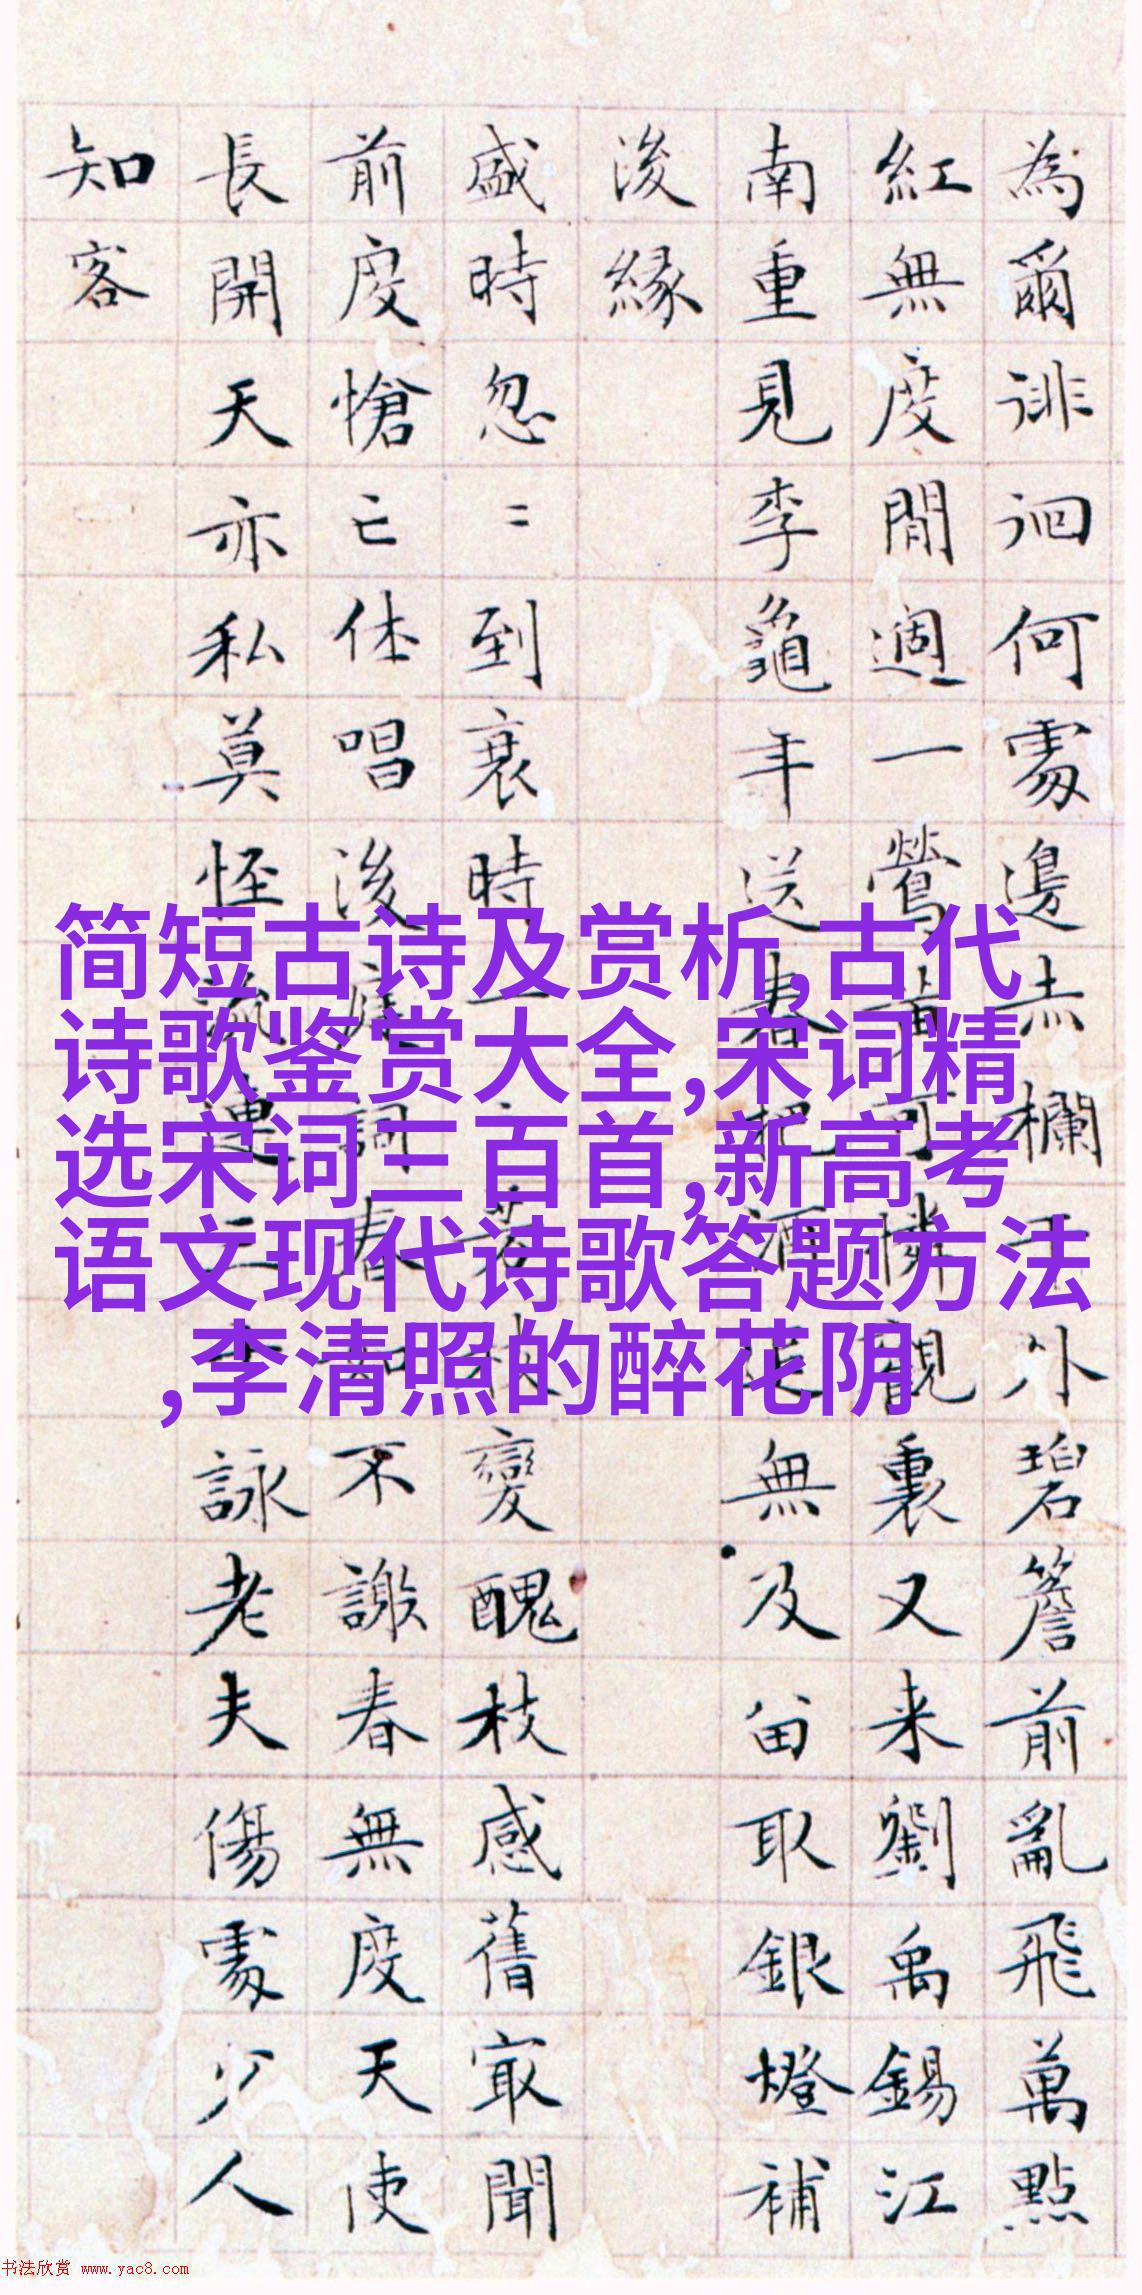 為爾徘徊何處邊赤欄干外碧簷前亂飛萬點
紅無度閒週一鶯可憐觀裏又来劉禹錫江
南重見李龜年送春把酒無及留取銀燈補
後緣
盛時忽〻到衰時一芳枝變醜枝感舊最聞
前度愴亡休唱後庭詞春知不謝春無度天使
長開天亦私莫怪流連詠老夫傷處少人
知客
简短古诗及赏析,古代
诗歌鉴赏大全,宋词精
选宋词三百首,新高考
语文现代诗歌答题方法
,李清照的醉花阴
书法欣赏 www.yac8.com